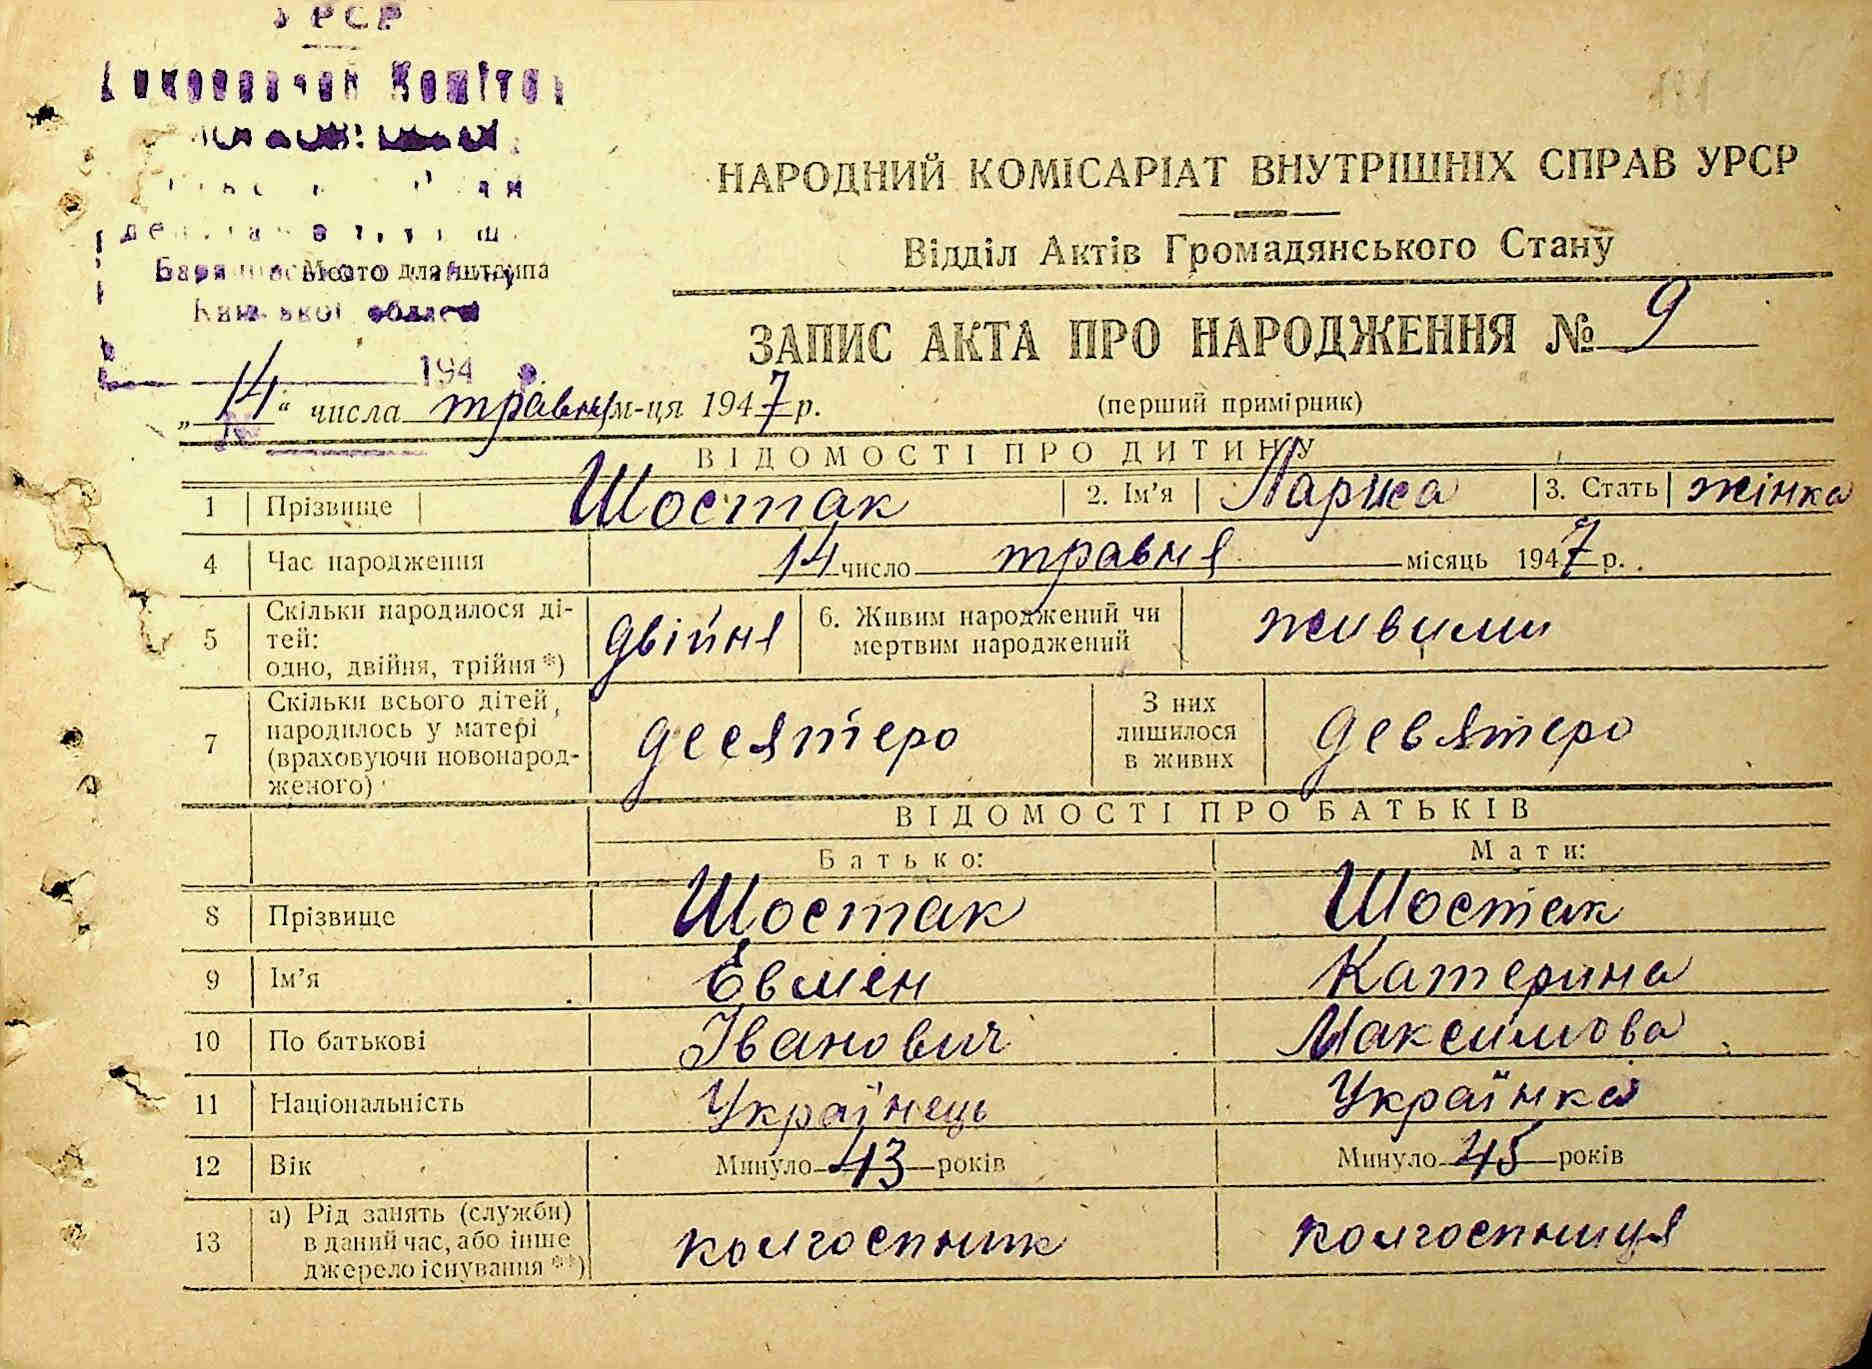 УРСР
Виконавчий Комітет
НАРОДНИЙ КОМІСАРІАТ ВНУТРІШНІХ СПРАВ УРСР
Відділ Актів Громадянського Стану
Место для штампа
Київської області
194 р.
ЗАПИС АКТА ПРО НАРОДЖЕННЯ № 9
(перший примірник)
„14“ числа травня м-ця 1947 р.
ВІДОМОСТІ ПРО ДИТИНУ
1 Прізвище Шостак 2. Ім’я Лариса 3. Стать жінка
4 Час народження 14 число травня місяць 1947 р.
5 Скільки народилося ді-
тей:
одно, двійня, трійня *) двійня 6. Живим народжений чи
мертвим народжений живими
7 Скільки всього дітей
народилось у матері
(враховуючи новонарод-
женого) десятеро З них
лишилося
в живих девятеро
ВІДОМОСТІ ПРО БАТЬКІВ
Батько: Мати:
8 Прізвище Шостак Шостак
9 Ім’я Евмен Катерина
10 По батькові Іванович Максимова
11 Національність Українець Українка
12 Вік Минуло 43 років Минуло 45 років
13 а) Рід занять (служби)
в даний час, або інше
джерело існування **) колгоспник колгоспниця